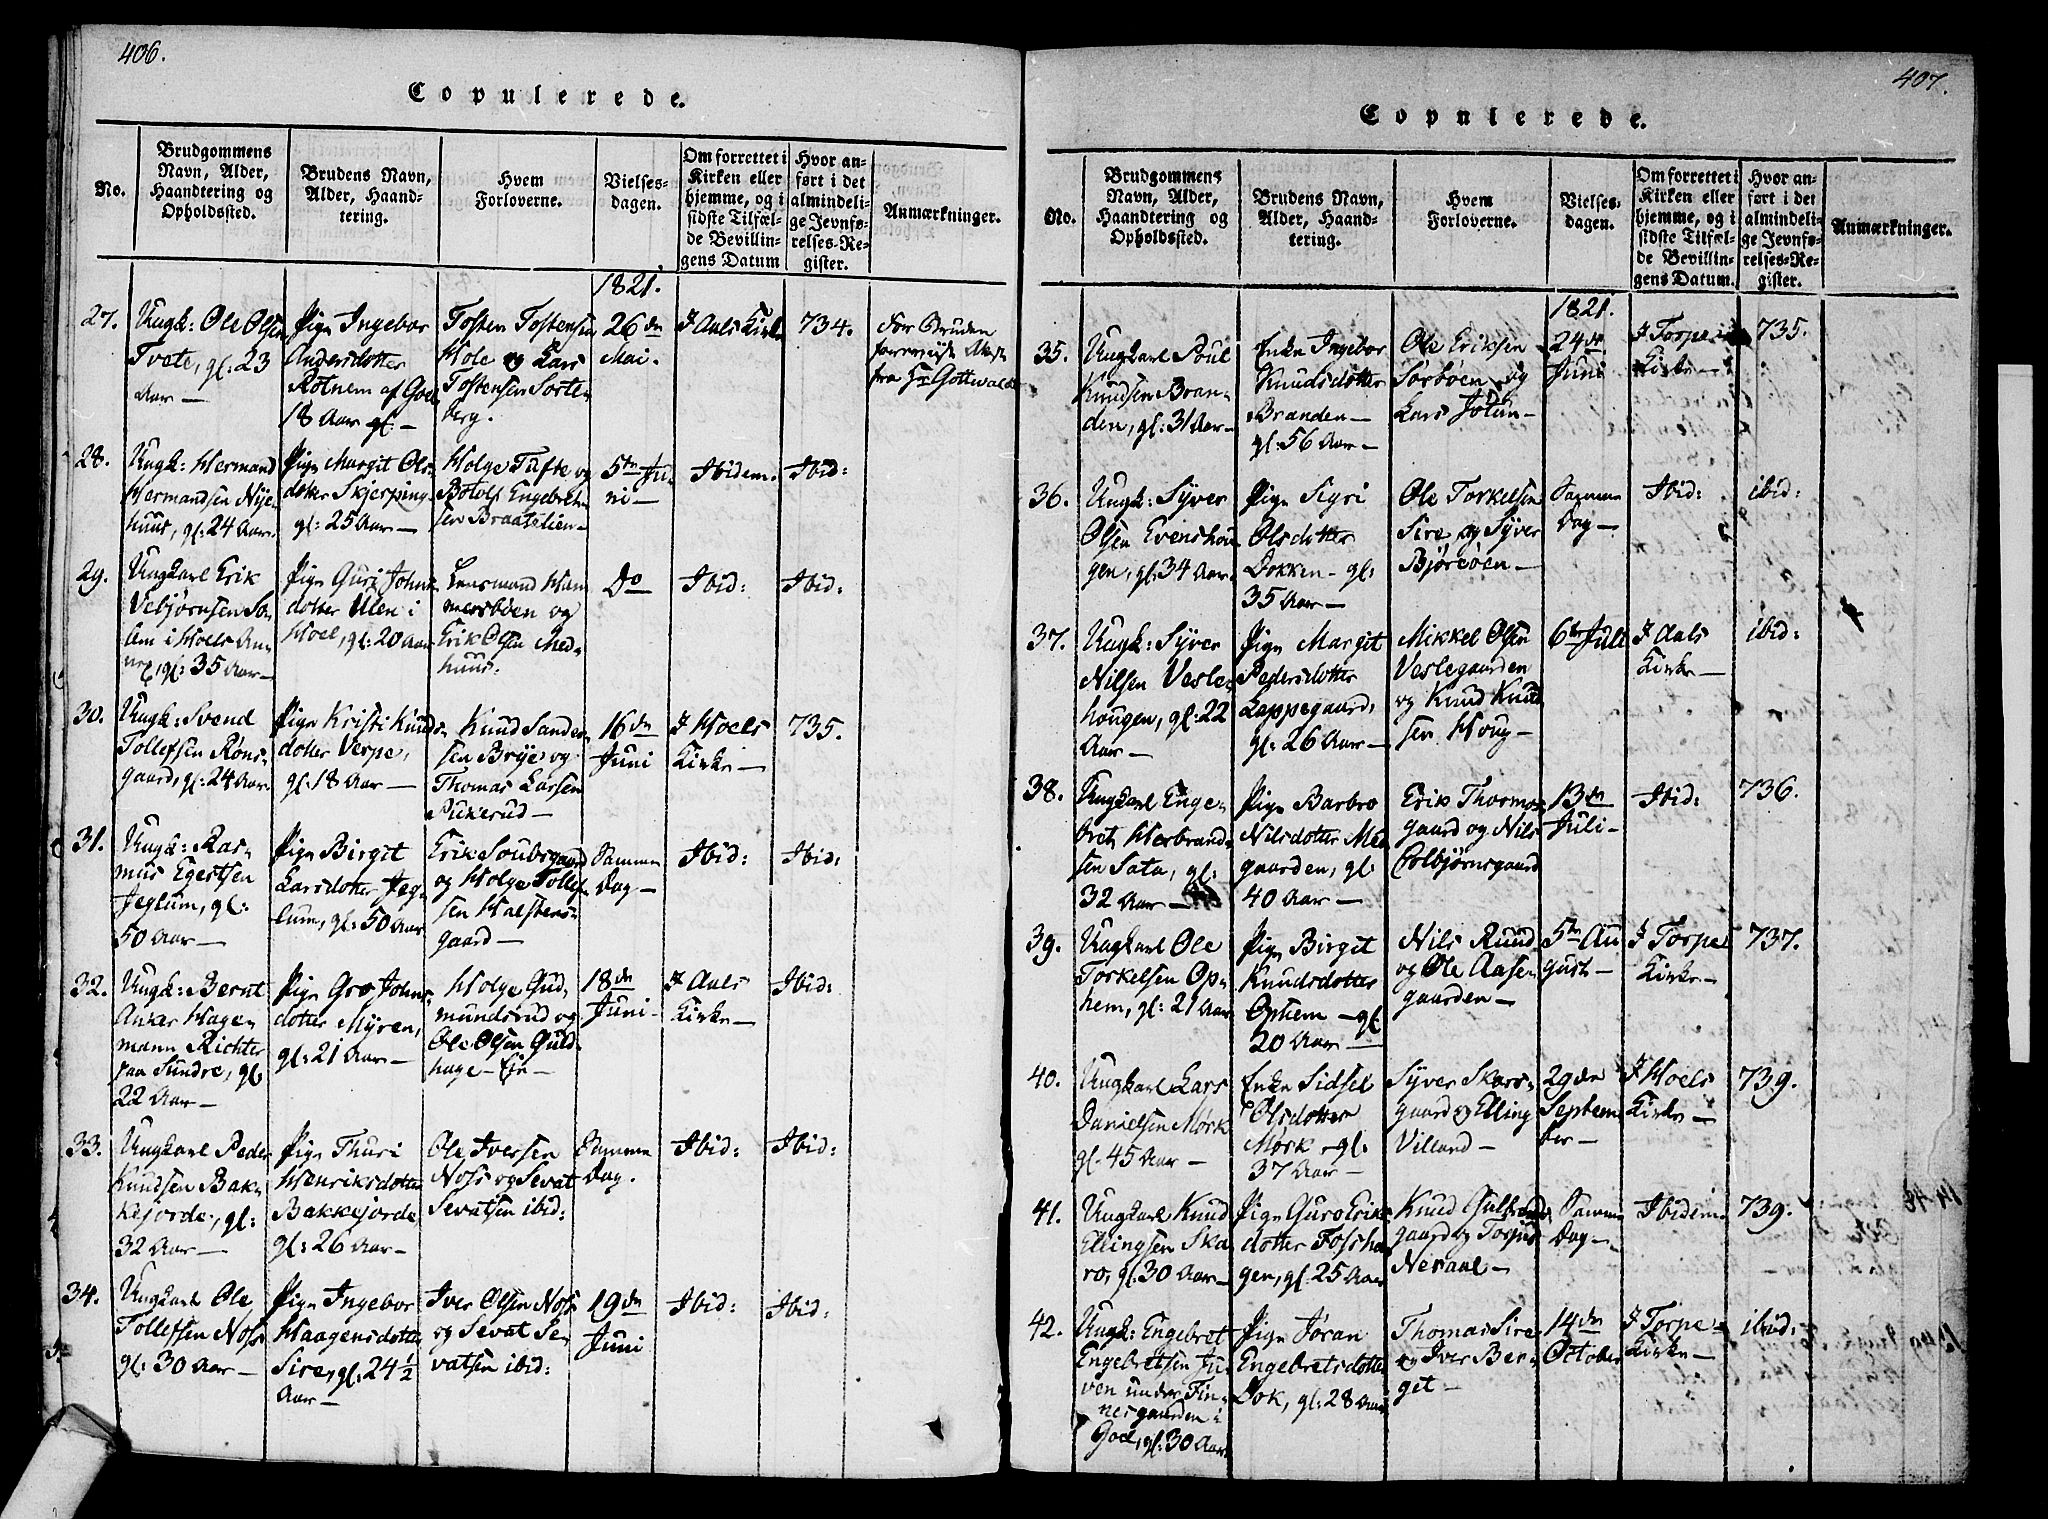 406.
Copulerede.
No.
Brudgommens
Navn, Alder,
Haandtering og
Opholdssted.
Brudens Navn,
Alder, Haand-
tering.
Hvem
Forloverne.
Vielses-
dagen.
Om forrettet i
Kirken eller
hjemme, og i
sidste Tilfæl-
de Bevillin-
gens Datum
Hvor an-
ført i det
almindeli-
ge Jevnfø-
relses-Re-
gister.
Anmærkninger.
1821.
27.
Ungk: Ole Olsen
Tvete, gl: 23
Aar —
Pige Ingebor
Andersdotter
Rotnem af Goel
18 Aar gl: —
Tosten Tostensen
Hole og Lars
Tostensen Sorte-
berg.
26de
Mai.
I Aals Kirke
734.
For Bruden
fra Hr Gottwaldt
28.
Ungk: Hermand
Hermandsen Nye-
huus, gl: 24 Aar
Pige Margit Ols-
dotter Skjerping
gl: 25 Aar —
Holge Tufte og
Botolf Engebreth-
sen Braatelien —
5te Ju-
ni —
Ibidem.
Ibid:
29.
Ungkarl Erik
Vebjørnsen So-
lem i Hoels An-
nex, gl: 35 Aar —
Pige Guri Johns-
dotter Ulen i
Hoel, gl: 20 Aar
Lensmand Ham-
mersbøen og
Erik Olsen Med-
huus:
Do
Ibid:
Ibid:
30.
Ungk: Svend
Tollefsen Røns-
gaard, gl: 24 Aar
Pige Kristi Knuds-
dotter Verpe,
gl: 18 Aar —
Knud Sander-
sen Brye og
Thomas Larsen
Pukerud —
16de
Juni
I Hoels
Kirke —
735.
31.
Ungk: Ras-
mus Egertsen
Jeglum, gl:
50 Aar —
Pige Birgit
Larsdotter Jeg-
lum, gl: 50 Aar
Erik Soubsgaard
og Holge Tollef-
sen Halstens-
gaard —
Samme
Dag —
Ibid:
Ibid:
32.
Ungk: Bernt
Anker Hage-
mann Richter
paa Sundre, gl:
22 Aar —
Pige Gro Johns-
dotter Myren,
gl: 21 Aar —
Holge Gud-
mundsrud og
Ole Olsen Guld-
hage —
18de
Juni —
I Aals
Kirke —
Ibid:
33.
Ungkarl Peder
Knudsen Bak-
kejorde, gl:
32 Aar —
Pige Thuri
Henriksdotter
Bakkejorde
gl: 26 Aar —
Ole Iversen
Noss og Sevat
Sevatsen ibid:
Samme
Dag.
Ibid:
Ibid:
34.
Ungkarl Ole
Tollefsen Noss
gl: 30 Aar —
Pige Ingebor
Haagensdotter
Sire, gl: 24½
Aar —
Iver Olsen Noss
og Sevat Se-
vatsen ibid:
19de
Juni
Ibid:
Ibid:
407.
Copulerede.
No.
Brudgommens
Navn, Alder,
Haandtering og
Opholdssted.
Brudens Navn,
Alder, Haand-
tering.
Hvem
Forloverne.
Vielses-
dagen.
Om forrettet i
Kirken eller
hjemme, og i
sidste Tilfæl-
de Bevillin-
gens Datum.
Hvor an-
ført i det
almindeli-
ge Jevnfø-
relses-Re-
gister.
Anmærkninger.
1821.
35.
Ungkarl Poul
Knudsen Bran-
den, gl: 31 Aar —
Enke Ingebor
Knudsdotter
Branden —
gl: 56 Aar —
Ole Eriksen
Sorbøen og
Lars Jotun —
24de
Juni
I Torpe
Kirke —
735.
36.
Ungk: Syver
Olsen Evenshou-
gen, gl: 34 Aar
Pige Sigri
Olsdotter
Dokken — gl:
35 Aar —
Ole Torkelsen
Sire og Syver
Bjørøen —
Samme
Dag —
Ibid:
ibid:
37.
Ungk: Syver
Nilsen Vesle-
hougen, gl: 22
Aar —
Pige Margit
Pedersdotter
Lappegaard,
gl: 26 Aar —
Mikkel Olsen
Veslegaarden
og Knud Knud-
sen Houg —
6te Juli
I Aals
Kirke —
ibid:
38.
Ungkarl Enge-
bret Herbrand-
sen Sata, gl:
32 Aar —
Pige Barbro
Nilsdotter Med-
gaarden, gl:
40 Aar —
Erik Thormo-
gaard og Nils
Colbjørnsgaard
13de
Juli —
Ibid:
736.
39.
Ungkarl Ole
Torkelsen Op-
hem, gl: 21 Aar
Pige Birgit
Knudsdotter
Ophem — gl:
20 Aar —
Nils Ruud
og Ole Aase-
gaarden —
5te Au-
gust —
I Torpe
Kirke —
737.
40.
Ungkarl Lars
Danielsen Mørk
gl. 45 Aar —
Enke Sidsel
Olsdotter
Mørk — gl:
37 Aar —
Syver Skars-
gaard og Elling
Villand —
29de
Septem-
ber —
I Hoels
Kirke —
739.
41.
Ungkarl Knud
Ellingsen Ska-
ro, gl: 30 Aar —
Pige Guro Eriks-
dotter Fossha-
gen, gl: 25 Aar
Knud Gulbrands-
gaard og Torgus
Neraal —
Samme
Dag —
Ibidem.
739.
42.
Ungk: Engebret
Engebretsen Ju-
ven under Fin-
nesgaarden i
God, gl: 30 Aar
Pige Jøran
Engebretsdotter
Dok, gl: 28 Aar
Thomas Sire
og Iver Ber-
get —
14de
October
I Torpe
Kirke —
ibid: